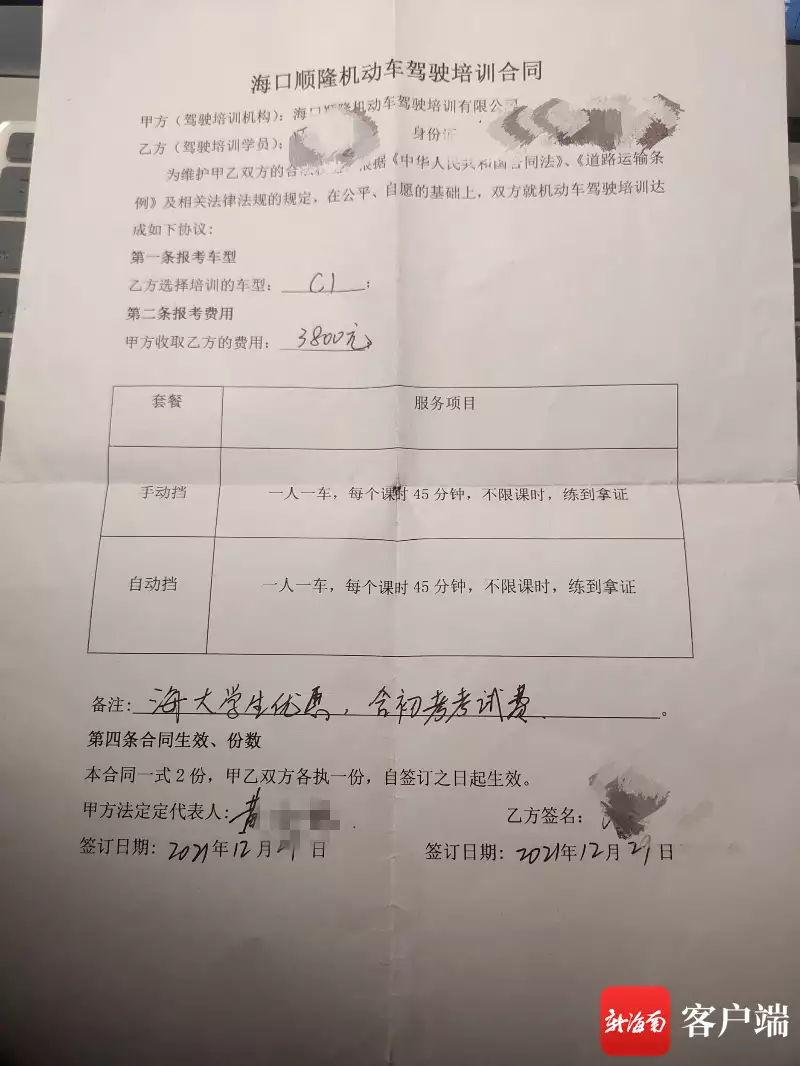 海口顺隆机动车驾驶培训合同
甲方（驾驶培训机构）：海口顺隆机动车驾驶培训有限公司
乙方（驾驶培训学员）： 身份证
为维护甲乙双方的合法权益，根据《中华人民共和国合同法》、《道路运输条
例》及相关法律法规的规定，在公平、自愿的基础上，双方就机动车驾驶培训达
成如下协议：
第一条报考车型
乙方选择培训的车型： C1 ；
第二条报考费用
甲方收取乙方的费用： 3800元
套餐 服务项目
手动挡 一人一车，每个课时 45 分钟，不限课时，练到拿证
自动挡 一人一车，每个课时 45 分钟，不限课时，练到拿证
备注: 海大学生优惠，含初考考试费 。
第四条合同生效、份数
本合同一式 2 份，甲乙双方各执一份，自签订之日起生效。
甲方法定定代表人: 黄 乙方签名：
签订日期: 2021年12月29日 签订日期: 2021年12月29日
新海南 客户端